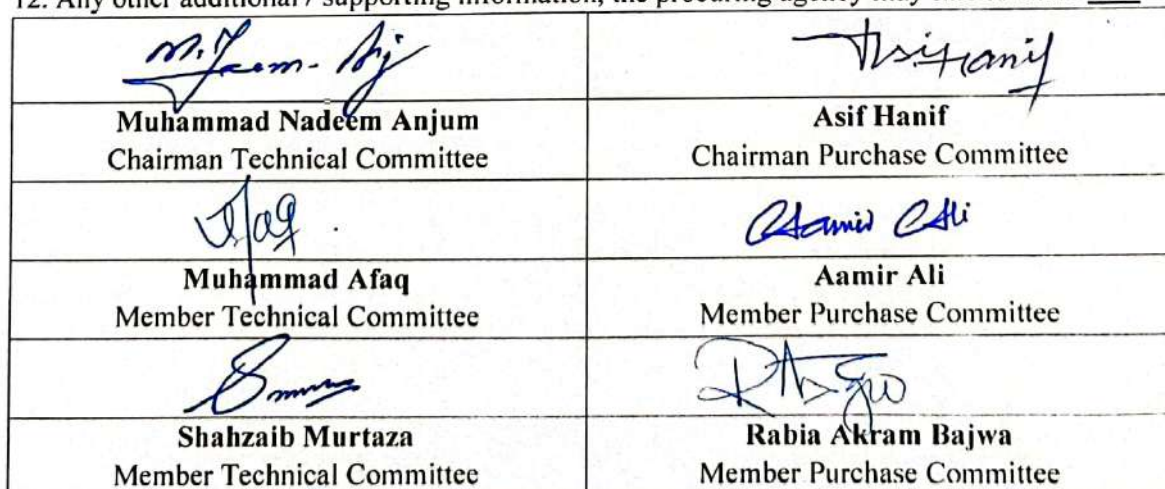 12. Any other additional / supporting information, the procuring agency may
Muhammad Nadeem Anjum
Chairman Technical Committee
Asif Hanif
Chairman Purchase Committee
Aamir Ali
Muhammad Afaq
Member Technical Committee
Aamir Ali
Member Purchase Committee
Shahzaib Murtaza
Member Technical Committee
Rabia Akram Bajwa
Member Purchase Committee